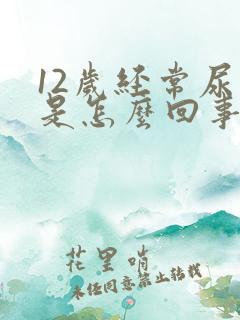 12歲經常尿
是怎麼回事
花里哨
未经同意禁止转载